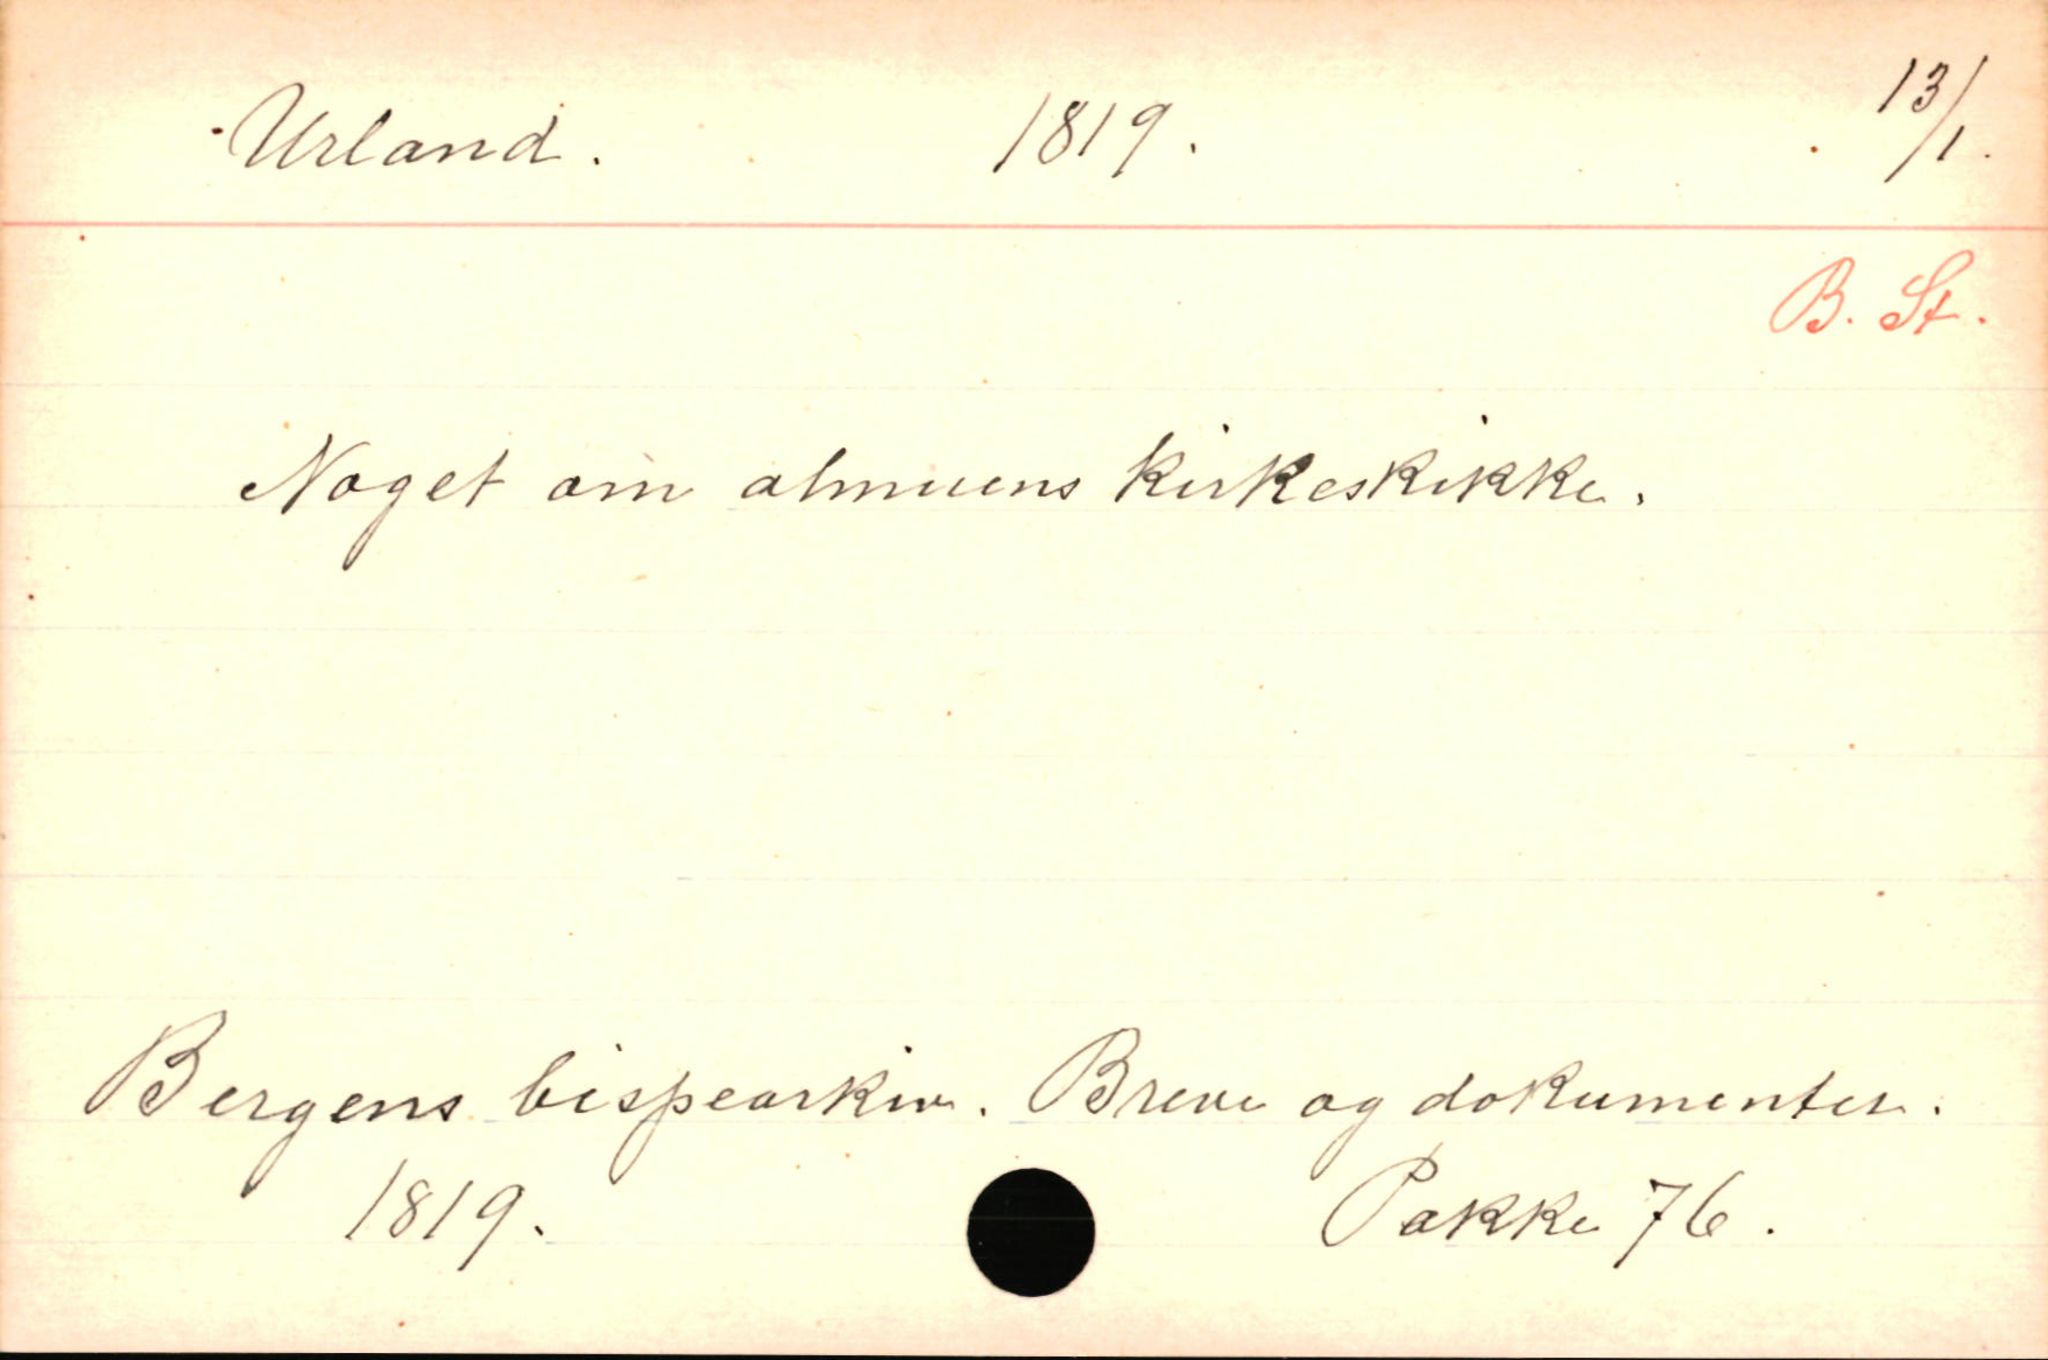 Urland. 1819. 13/1.
B. St.
Noget om almuens kirkeskikke.
Bergens bispearkiv. Breve og dokumenter.
1819. Pakke 76.